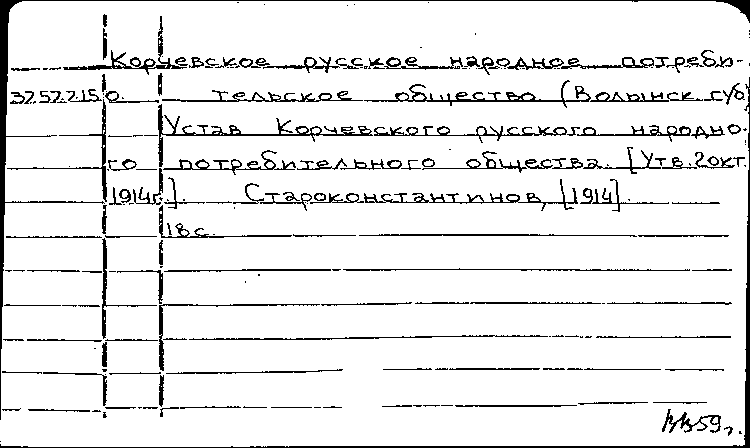 Корчевское русское народное потреби-
37.57.7.150. тельское общество (Волынск. губ)
Устав Корчевского русского народно-
го потребительного общества. [Утв. 2 окт.
1914г.]. Староконстантинов, [1914].
18 с.
59 г.